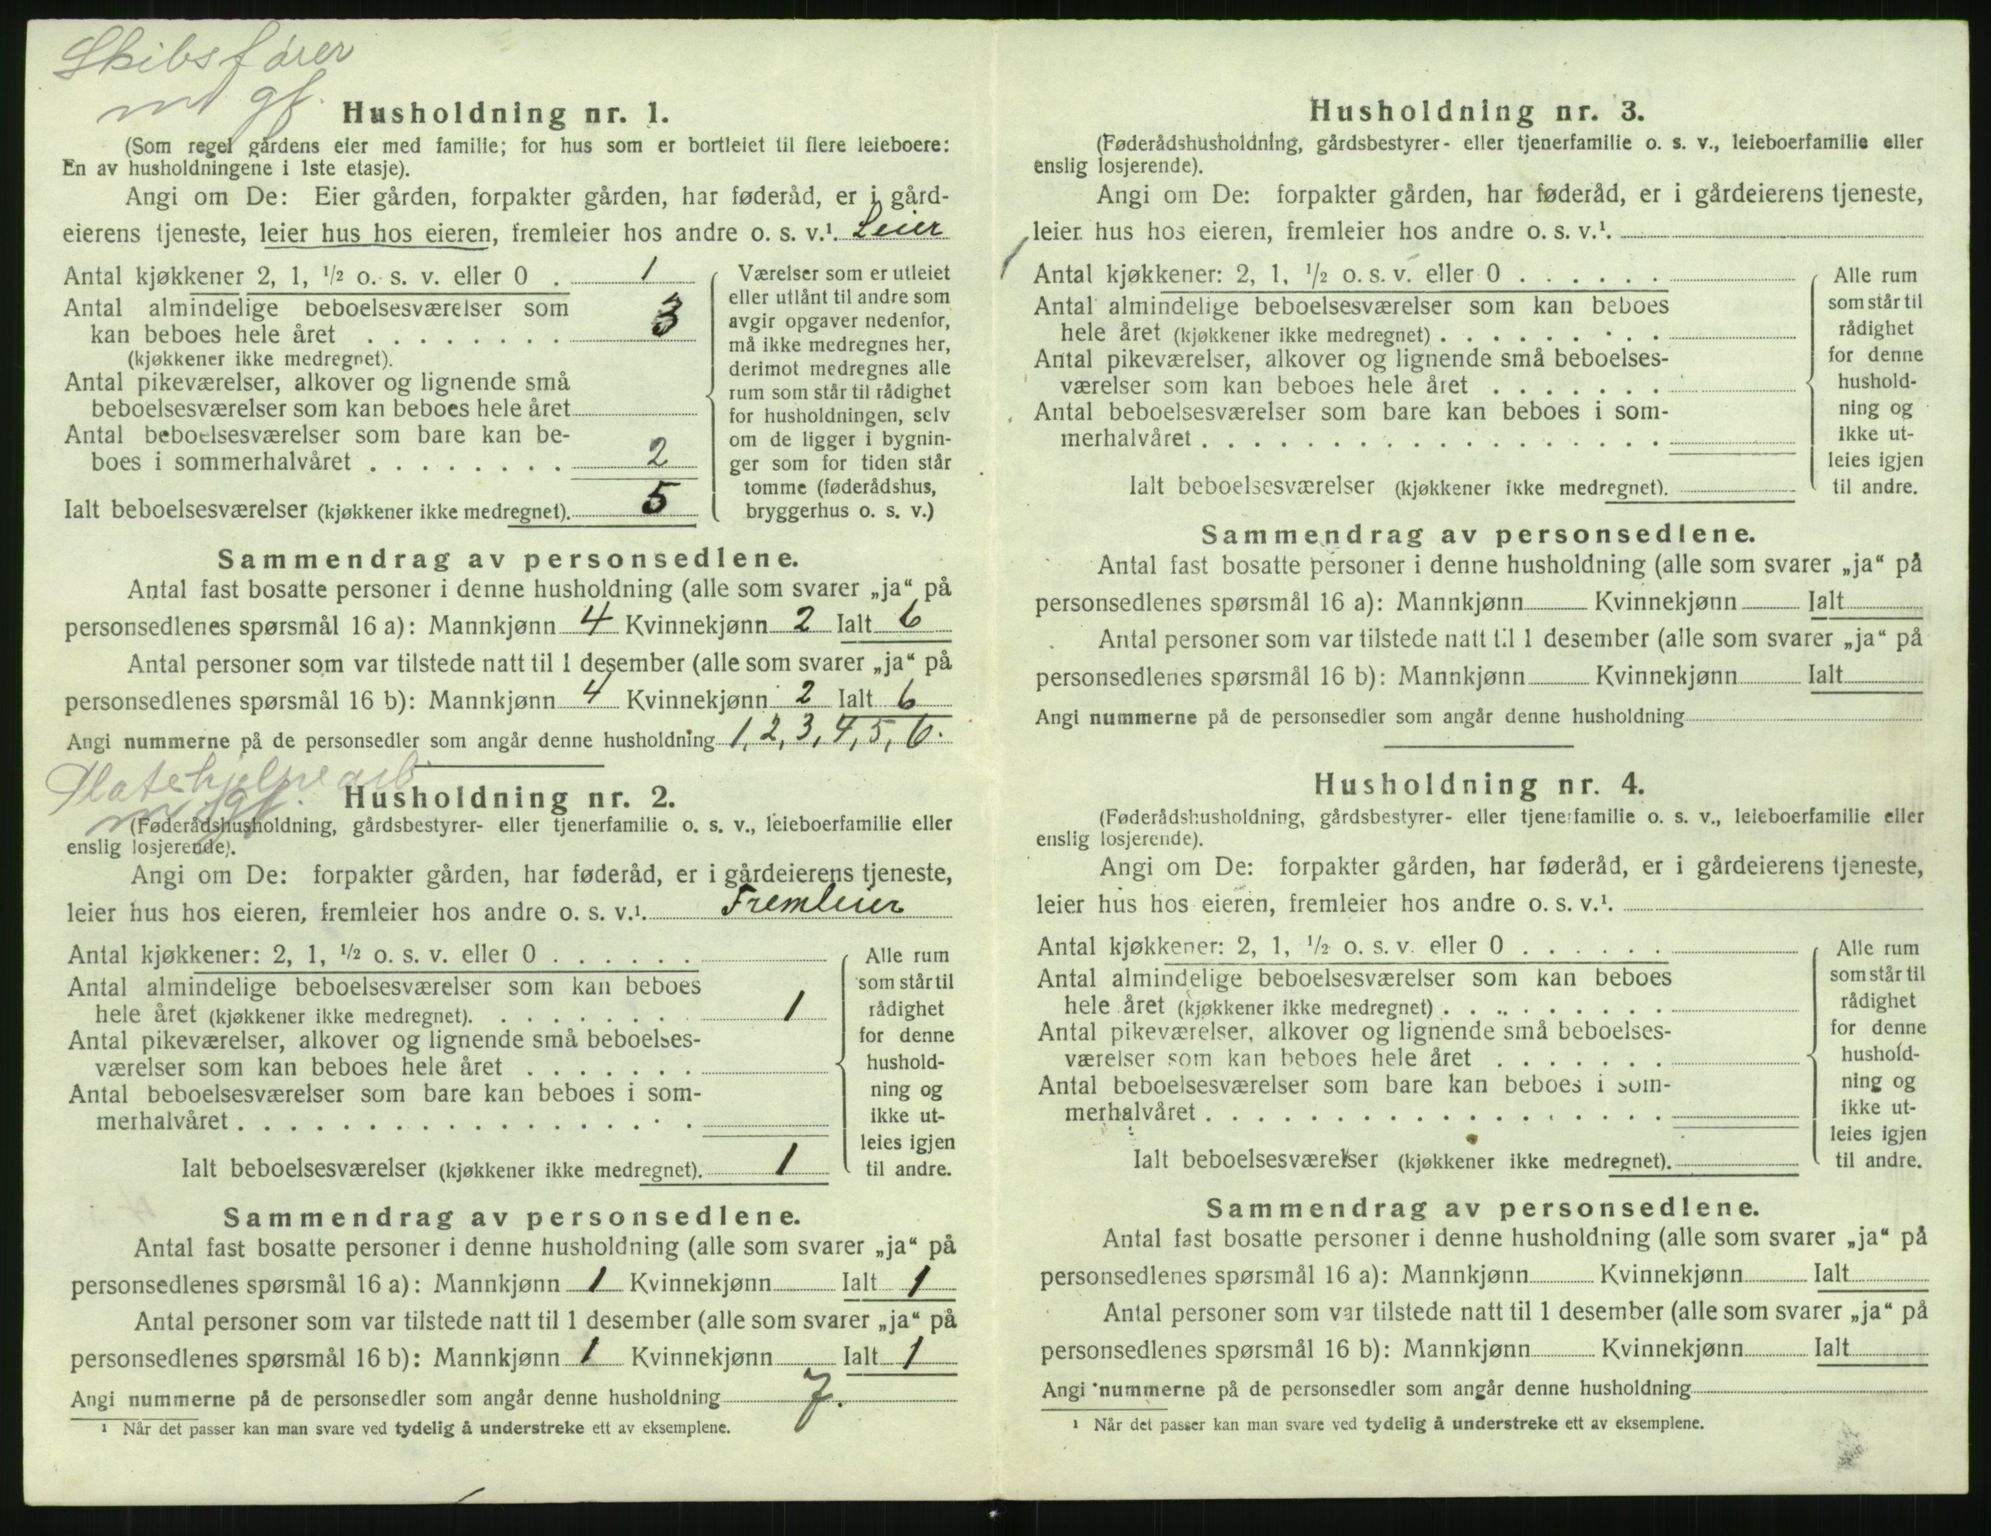 Skibsfører
m gf.
Husholdning nr. 1.
(Som regel gårdens eier med familie; for hus som er bortleiet til flere leieboere:
En av husholdningene i 1ste etasje).
Angi om De: Eier gården, forpakter gården, har føderåd, er i gård-
eierens tjeneste, leier hus hos eieren, fremleier hos andre o. s. v.¹. Leier
Antal kjøkkener 2, 1, ½ o. s. v. eller 0 . 1
Antal almindelige beboelsesværelser som
kan beboes hele året . . . . . . . . 3
(kjøkkener ikke medregnet).
Antal pikeværelser, alkover og lignende små
beboelsesværelser som kan beboes hele året
Antal beboelsesværelser som bare kan be-
boes i sommerhalvåret . . . . . . . 2
Ialt beboelsesværelser (kjøkkener ikke medregnet). 5
Værelser som er utleiet
eller utlånt til andre som
avgir opgaver nedenfor,
må ikke medregnes her,
derimot medregnes alle
rum som står til rådighet
for husholdningen, selv
om de ligger i bygnin-
ger som for tiden står
tomme (føderådshus,
bryggerhus o. s. v.)
Sammendrag av personsedlene.
Antal fast bosatte personer i denne husholdning (alle som svarer „ja“ på
personsedlenes spørsmål 16 a): Mannkjønn 4 Kvinnekjønn 2 Ialt 6
Antal personer som var tilstede natt til 1 desember (alle som svarer „ja“ på
personsedlenes spørsmål 16 b): Mannkjønn 4 Kvinnekjønn 2 Ialt 6
Angi nummerne på de personsedler som angår denne husholdning 1, 2, 3, 4, 5, 6.
Platehjelpearb.
m gf.
Husholdning nr. 2.
(Føderådshusholdning, gårdsbestyrer- eller tjenerfamilie o. s. v., leieboerfamilie eller
enslig losjerende).
Angi om De: forpakter gården, har føderåd, er i gårdeierens tjeneste,
leier hus hos eieren, fremleier hos andre o. s. v.¹. Fremleier
Antal kjøkkener: 2, 1, ½ o. s. v. eller 0 . . . . . .
Antal almindelige beboelsesværelser som kan beboes
hele året (kjøkkener ikke medregnet). . . . . . . . . 1
Antal pikeværelser, alkover og lignende små beboelses-
værelser som kan beboes hele året . . . . . . .
Antal beboelsesværelser som bare kan beboes i som-
merhalvåret . . . . . . . . . . . . . . . . . .
Ialt beboelsesværelser (kjøkkener ikke medregnet). 1
Alle rum
som står til
rådighet
for denne
hushold-
ning og
ikke ut-
leies igjen
til andre.
Sammendrag av personsedlene.
Antal fast bosatte personer i denne husholdning (alle som svarer „ja“ på
personsedlenes spørsmål 16 a): Mannkjønn 1 Kvinnekjønn Ialt 1
Antal personer som var tilstede natt til 1 desember (alle som svarer „ja“ på
personsedlenes spørsmål 16 b): Mannkjønn 1 Kvinnekjønn Ialt 1
Angi nummerne på de personsedler som angår denne husholdning 7.
¹ Når det passer kan man svare ved tydelig å understreke ett av eksemplene.
Husholdning nr. 3.
(Føderådshusholdning, gårdsbestyrer- eller tjenerfamilie o. s. v., leieboerfamilie eller
enslig losjerende).
Angi om De: forpakter gården, har føderåd, er i gårdeierens tjeneste,
leier hus hos eieren, fremleier hos andre o. s. v.¹.
Antal kjøkkener: 2, 1, ½ o. s. v. eller 0 . . . . . .
Antal almindelige beboelsesværelser som kan beboes
hele året (kjøkkener ikke medregnet) . . . . . . . . .
Antal pikeværelser, alkover og lignende små beboelses-
værelser som kan beboes hele året . . . . . . .
Antal beboelsesværelser som bare kan beboes i som-
merhalvåret . . . . . . . . . . . . . . . . . .
Ialt beboelsesværelser (kjøkkener ikke medregnet).
Alle rum
som står til
rådighet
for denne
hushold-
ning og
ikke ut-
leies igjen
til andre.
Sammendrag av personsedlene.
Antal fast bosatte personer i denne husholdning (alle som svarer „ja“ på
personsedlenes spørsmål 16 a): Mannkjønn Kvinnekjønn Ialt
Antal personer som var tilstede natt til 1 desember (alle som svarer „ja“ på
personsedlenes spørsmål 16 b): Mannkjønn Kvinnekjønn Ialt
Angi nummerne på de personsedler som angår denne husholdning
Husholdning nr. 4.
(Føderådshusholdning, gårdsbestyrer- eller tjenerfamilie o. s. v., leieboerfamilie eller
enslig losjerende).
Angi om De: forpakter gården, har føderåd, er i gårdeierens tjeneste,
leier hus hos eieren, fremleier hos andre o. s. v.¹.
Antal kjøkkener: 2, 1, ½ o. s. v. eller 0 . . . . . .
Antal almindelige beboelsesværelser som kan beboes
hele året (kjøkkener ikke medregnet) . . . . . . . . .
Antal pikeværelser, alkover og lignende små beboelses-
værelser som kan beboes hele året . . . . . . .
Antal beboelsesværelser som bare kan beboes i som-
merhalvåret . . . . . . . . . . . . . . . . . .
Ialt beboelsesværelser (kjøkkener ikke medregnet).
Alle rum
som står til
rådighet
for denne
hushold-
ning og
ikke ut-
leies igjen
til andre.
Sammendrag av personsedlene.
Antal fast bosatte personer i denne husholdning (alle som svarer „ja“ på
personsedlenes spørsmål 16 a): Mannkjønn Kvinnekjønn Ialt
Antal personer som var tilstede natt til 1 desember (alle som svarer „ja“ på
personsedlenes spørsmål 16 b): Mannkjønn Kvinnekjønn Ialt
Angi nummerne på de personsedler som angår denne husholdning
¹ Når det passer kan man svare ved tydelig å understreke ett av eksemplene.